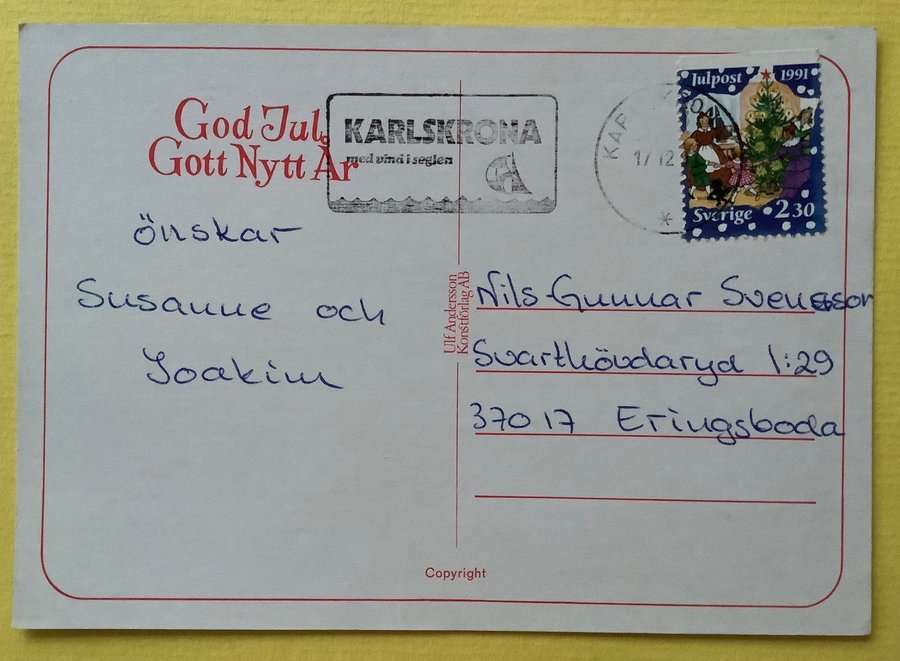 God Jul,
Gott Nytt År
önskar
Susanne och
Joakim
KARLSKRONA
med vind i seglen
17 12
Julpost 1991
Sverige 2 30
Ulf Andersson
Konstförlag AB
Nils-Gunnar Svensson
Svarthövdaryd 1:29
370 17 Eringsboda
Copyright